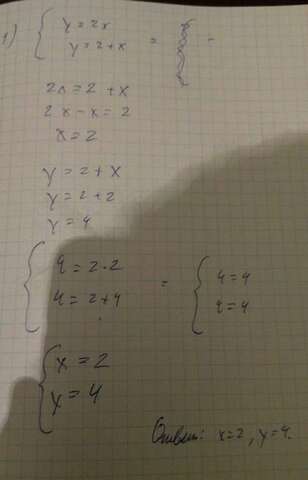 1) { y = 2x
y = 2 + x =
2x = 2 + x
2x - x = 2
x = 2
y = 2 + x
y = 2 + 2
y = 4
{ 4 = 2·2 = { 4 = 4
4 = 2 + 4 4 = 4
{ x = 2
y = 4
Ответ: x = 2, y = 4.